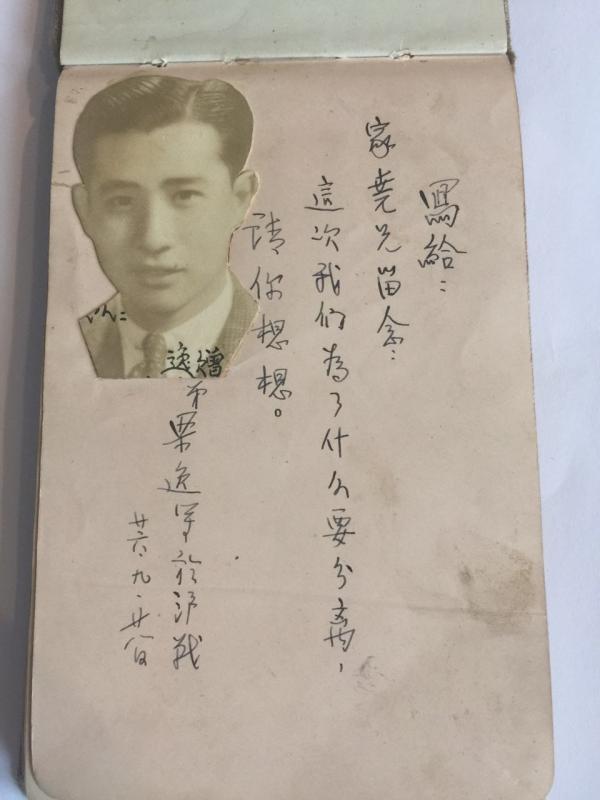 寫給：
家堯兄留念：
這次我们為了什么要分离，
請你想想。
弟栗逸軍於沪戰
廿六.九.廿八日
逸贈